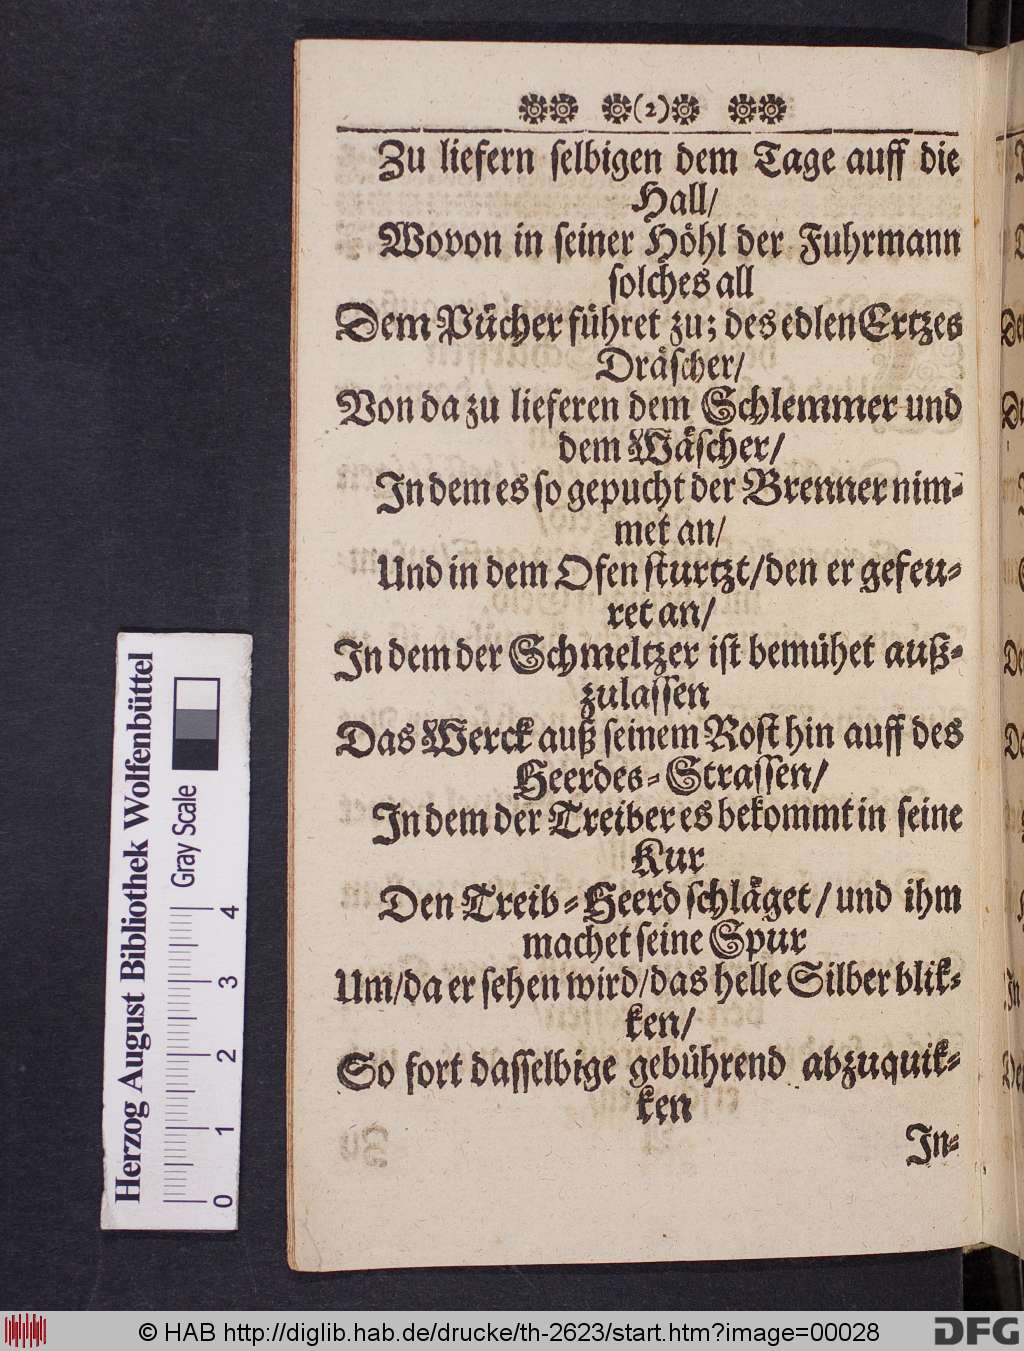 (2)
Zu liefern selbigen dem Tage auff die
Hall/
Wovon in seiner Höhl der Fuhrmann
solches all
Dem Pücher führet zu; des edlen Ertzes
Dräscher/
Von da zu lieferen dem Schlemmer und
dem Wäscher/
In dem es so gepucht der Brenner nim-
met an/
Und in dem Ofen sturtzt/den er gefeu-
ret an/
In dem der Schmeltzer ist bemühet auß-
zulassen
Das Werck auß seinem Rost hin auff des
Heerdes-Strassen/
In dem der Treiber es bekommt in seine
Kur
Den Treib-Heerd schläget/und ihm
machet seine Spur
Um/da er sehen wird/das helle Silber blik-
ken/
So fort dasselbige gebührend abzuquik-
ken
In-
Herzog August Bibliothek Wolfenbüttel
Gray Scale
0 1 2 3 4
© HAB http://diglib.hab.de/drucke/th-2623/start.htm?image=00028
DFG